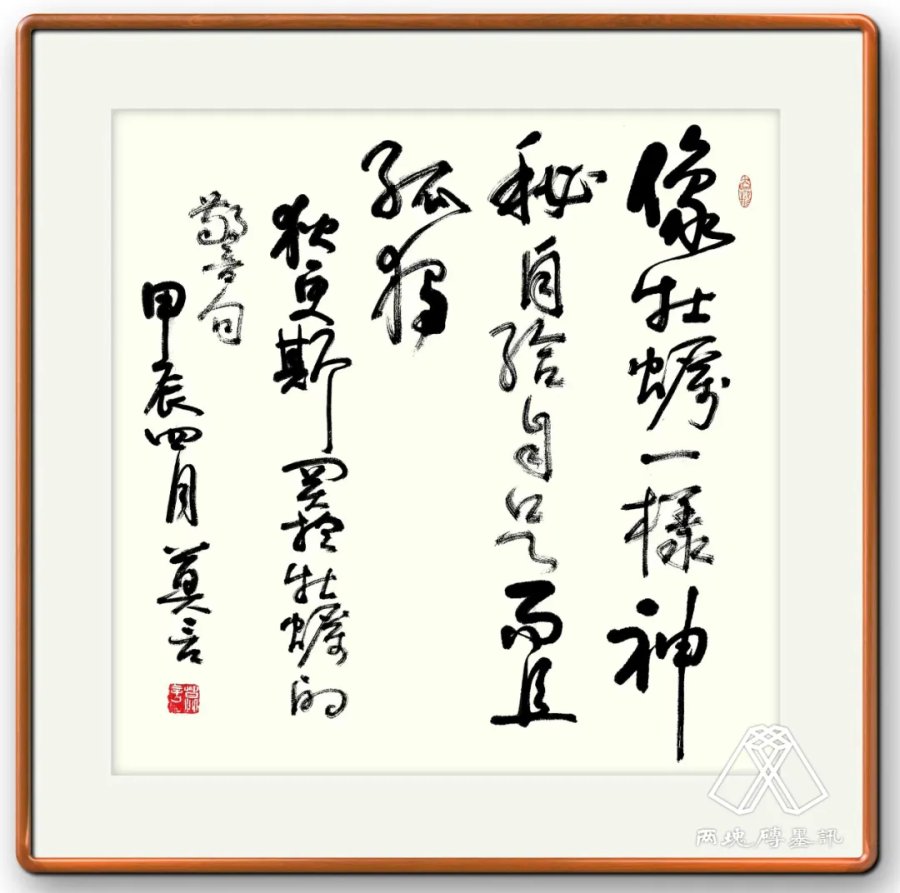 像牡蠣一樣神
秘自给自足而且
孤獨
狄更斯関於牡蠣的
警句
甲辰四月 莫言
两塊磚墨訊